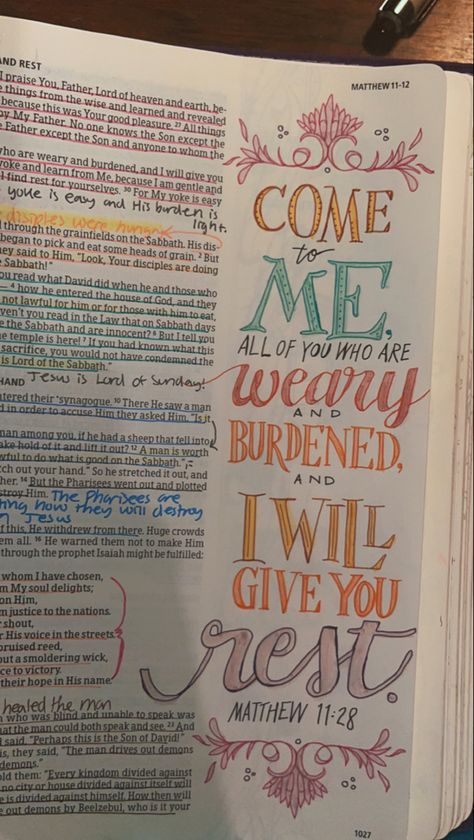 AND REST
I praise You, Father, Lord of heaven and earth, be-
things from the wise and learned and revealed
because this was Your good pleasure. 27 All things
by My Father. No one knows the Son except the
Father except the Son and anyone to whom the
who are weary and burdened, and I will give you
yoke and learn from Me, because I am gentle and
I find rest for yourselves. 30 For My yoke is easy
yoke is easy and His burden is
light.
disciples were hungry
through the grainfields on the Sabbath. His dis-
began to pick and eat some heads of grain. 2 But
they said to Him, "Look, Your disciples are doing
Sabbath!"
you read what David did when he and those who
— 4 how he entered the house of God, and they
not lawful for him or for those with him to eat,
haven't you read in the Law that on Sabbath days
the Sabbath and are innocent? 6 But I tell you
the temple is here! 7 If you had known what this
sacrifice, you would not have condemned the
is Lord of the Sabbath."
HAND
Jesus is Lord of Sunday!
entered their synagogue. 10 There He saw a man
d in order to accuse Him they asked Him, "Is it
man among you, if he had a sheep that fell into
take hold of it and lift it out? 12 A man is worth
lawful to do what is good on the Sabbath."
tch out your hand." So he stretched it out, and
her. 14 But the Pharisees went out and plotted
destroy Him.
The Pharisees are
ting how they will destroy
Jesus
of this, He withdrew from there. Huge crowds
em all. 16 He warned them not to make Him
through the prophet Isaiah might be fulfilled:
whom I have chosen,
om My soul delights;
on Him,
m justice to the nations.
shout,
r His voice in the streets.
bruised reed,
out a smoldering wick,
ce to victory.
their hope in His name.
healed the man
who was blind and unable to speak was
hat the man could both speak and see. 23 And
said, "Perhaps this is the Son of David!"
is, they said, "The man drives out demons
demons."
old them: "Every kingdom divided against
no city or house divided against itself will
e is divided against himself. How then will
e out demons by Beelzebul, who is it your
MATTHEW 11-12
COME
to
ME,
ALL OF YOU WHO ARE
weary
AND
BURDENED,
AND
I WILL
GIVE YOU
rest.
MATTHEW 11:28
1027